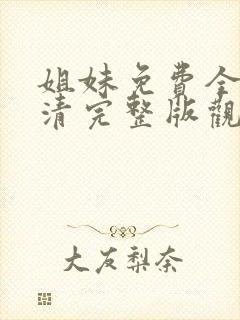 姐妹免費全
清完整版觀
大友梨奈